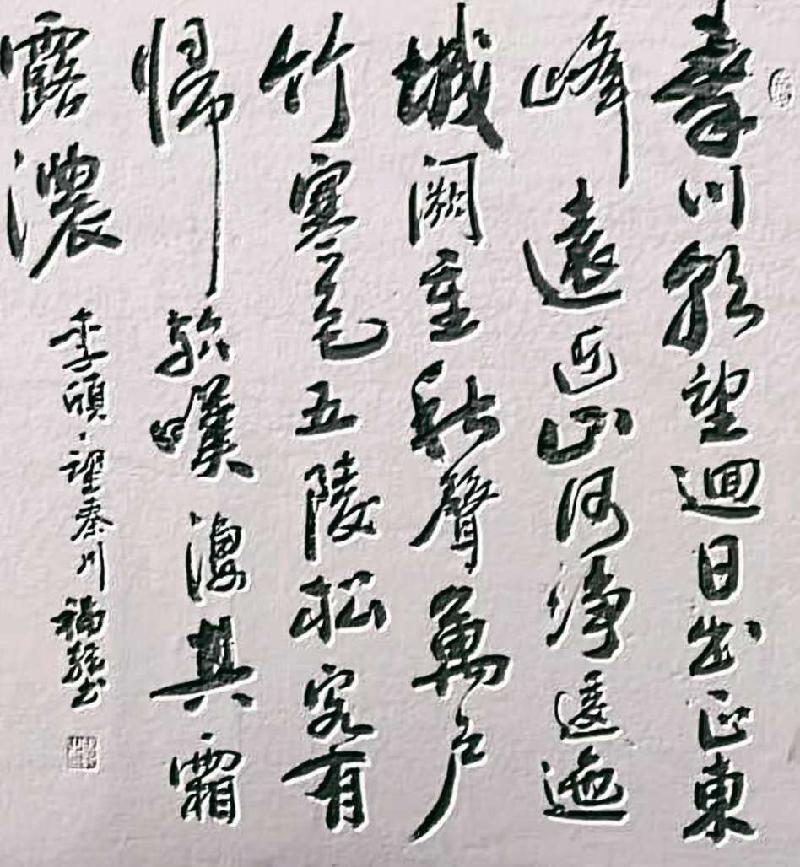 秦川朝望迴日出正東
峰遠近山河淨逶迤
城闕重秋聲萬戶
竹寒色五陵松客有
帰歟嘆淒其霜
露濃
李頎·望秦川 福书